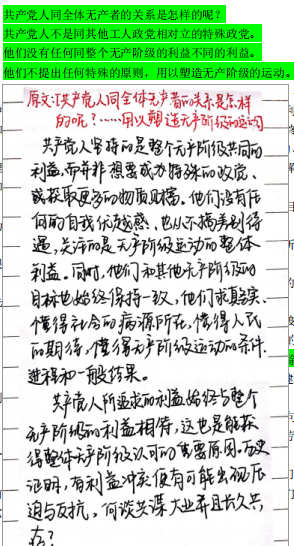 共产党人同全体无产者的关系是怎样的呢？
共产党人不是同其他工人政党相对立的特殊政党。
他们没有任何同整个无产阶级的利益不同的利益。
他们不提出任何特殊的原则，用以塑造无产阶级的运动。
原文：“共产党人同全体无产者的关系是怎样
的呢？……用以塑造无产阶级的运动
共产党人坚持的是整个无产阶级共同的
利益，而并非想要成为特殊的政党、
或获取更多的物质见犒。他们没有任
何的自我优越感、也从不搞差别待
遇，关注的是无产阶级运动的整体
利益。同时，他们和其他无产阶级的
目标也始终保持一致，他们求真务实、
懂得社会的病源所在，懂得人民
的期待，懂得无产阶级运动的条件、
进程和一般结果。
共产党人所追求的利益始终与整个
无产阶级的利益相符，这也是能获
得整体无产阶级认可的重要原因。历史
证明，有利益冲突便有可能出现压
迫与反抗，何谈共谋大业并且长久共
存？